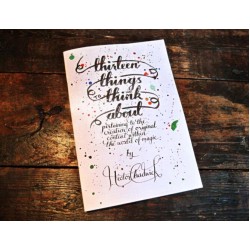 thirteen
things
to think
about
pertaining to the
creation of original
content within
the world of magic
by
Hector Chadwick